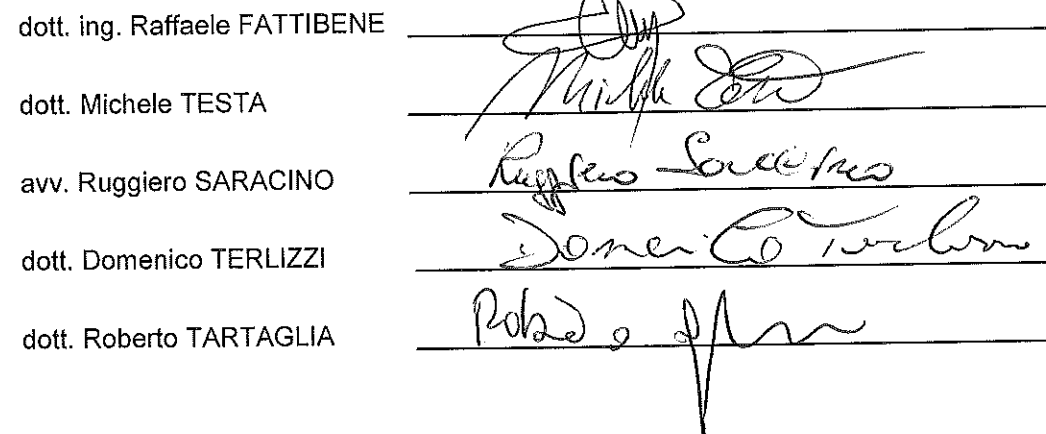 dott. ing. Raffaele FATTIBENE
dott. Michele TESTA Michele Testa
avv. Ruggiero SARACINO Ruggiero Saracino
dott. Domenico TERLIZZI Domenico Terlizzi
dott. Roberto TARTAGLIA Roberto